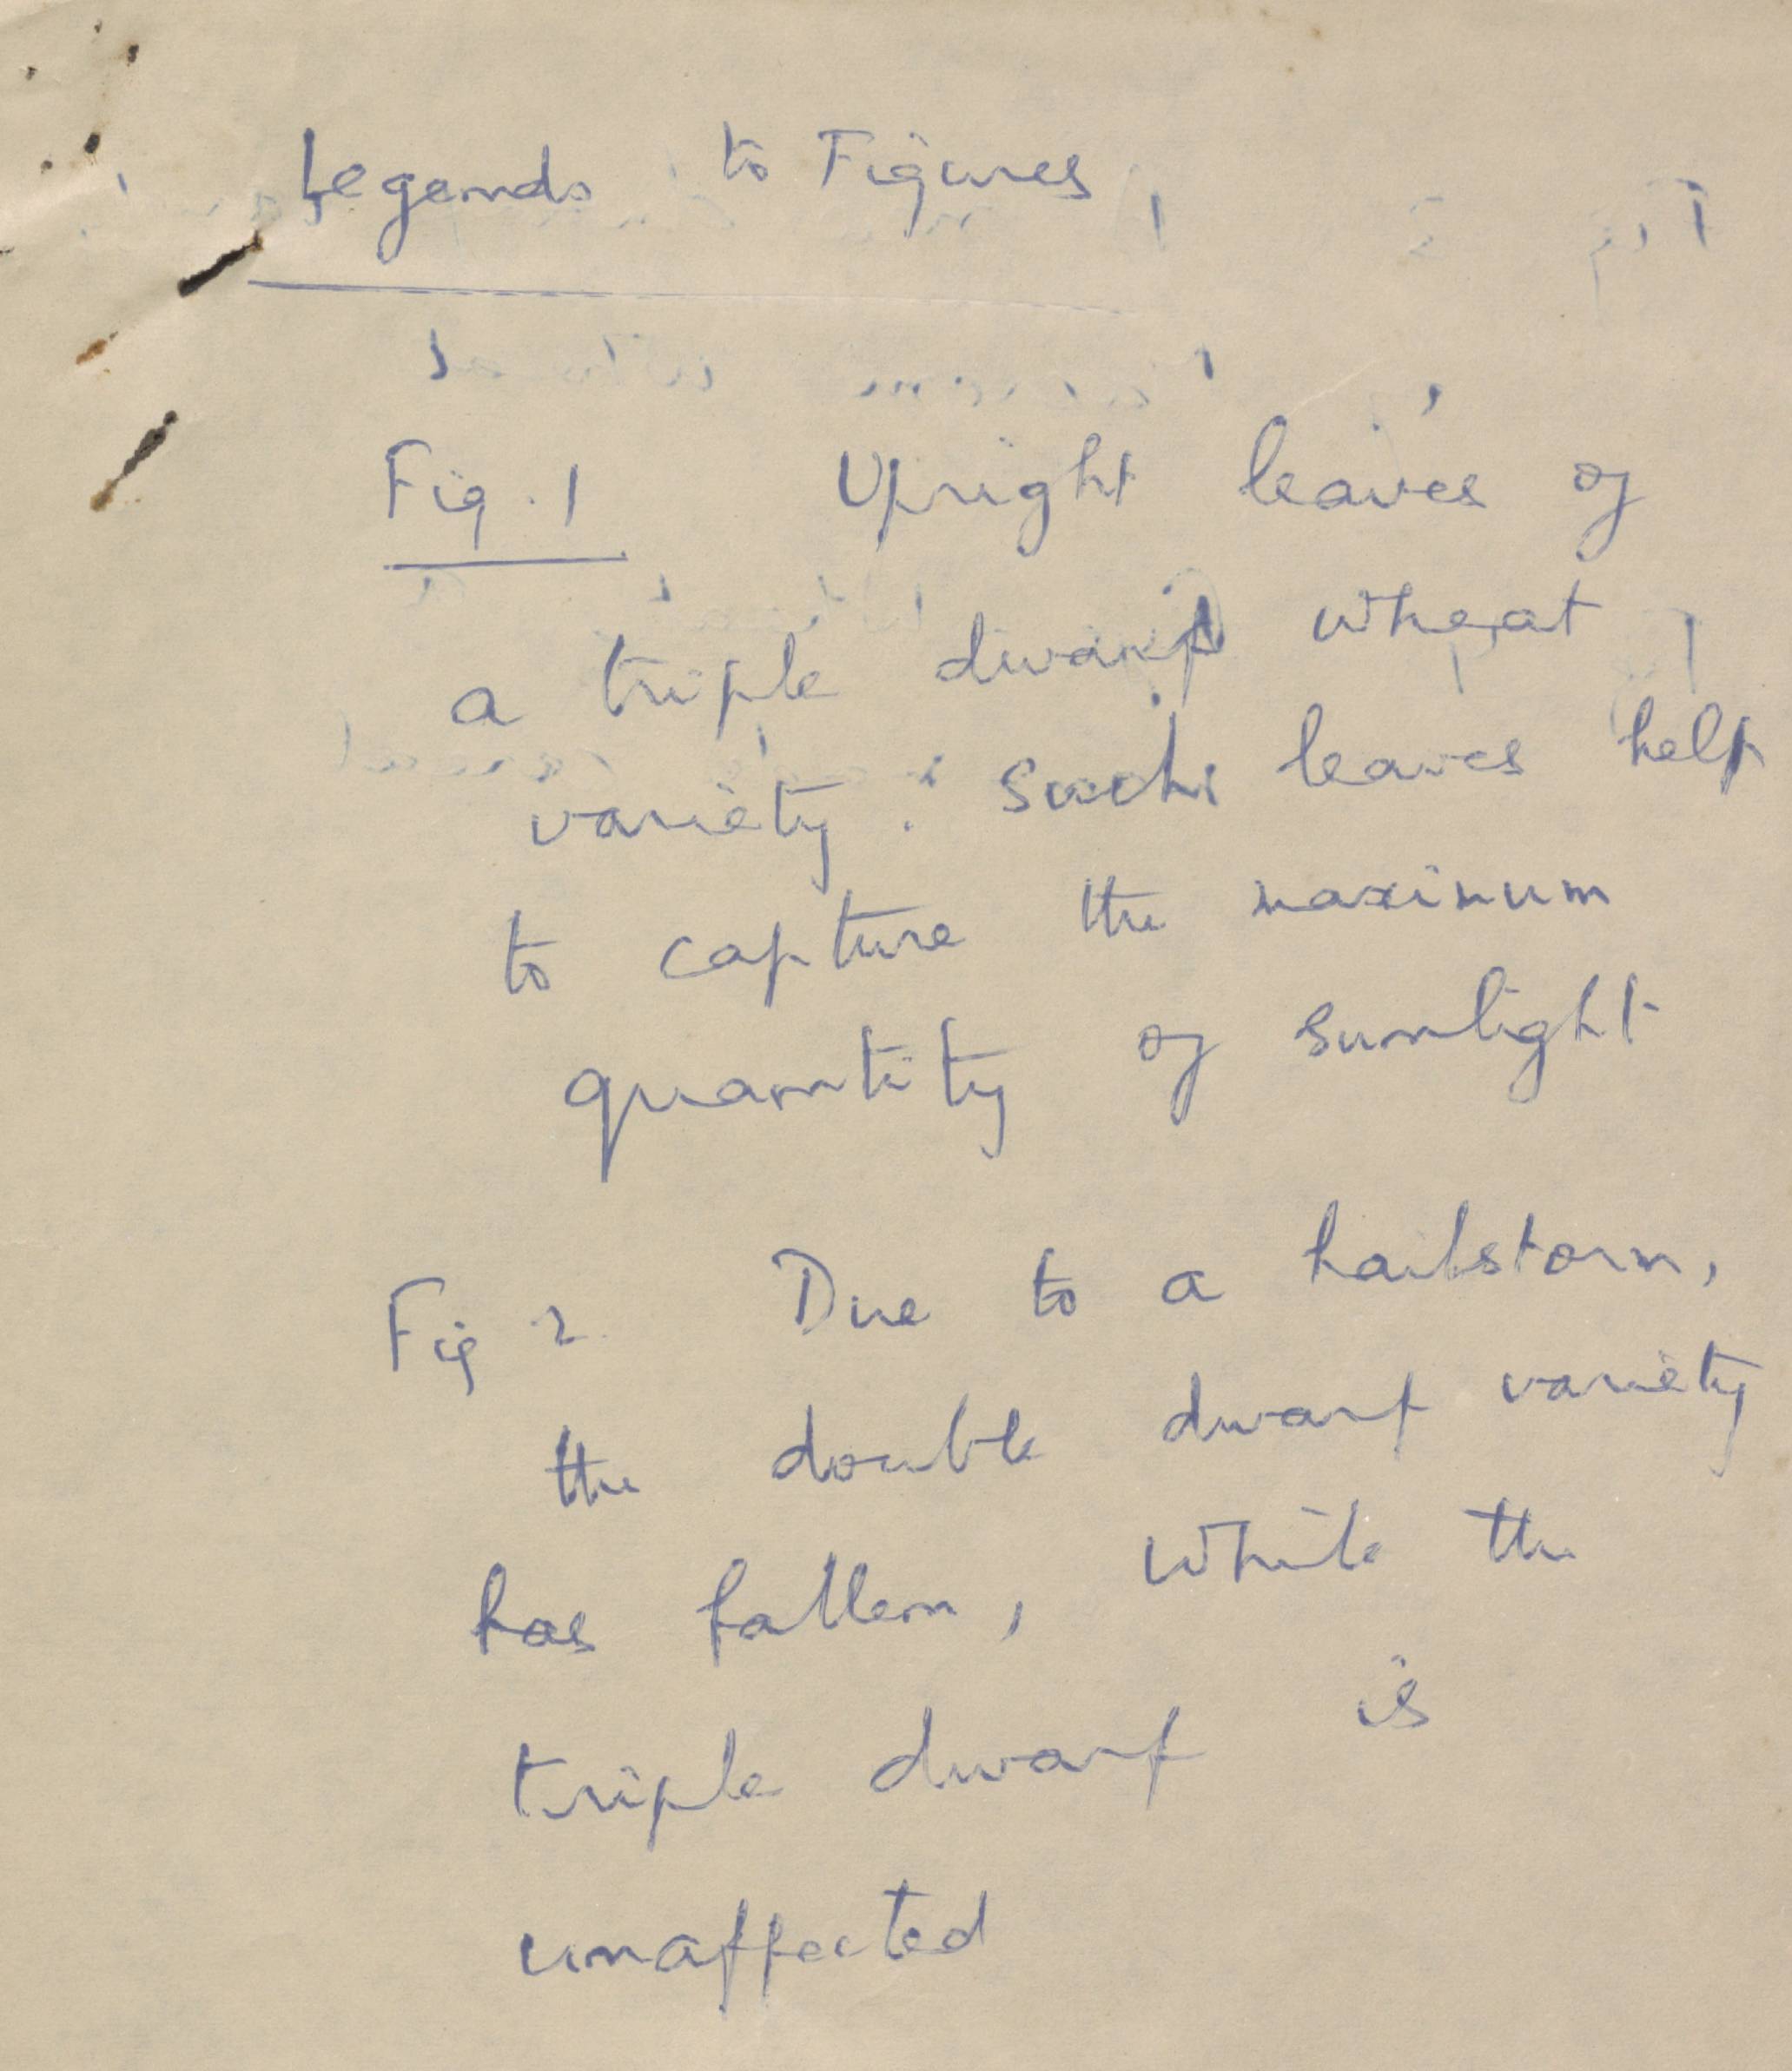 Legends to Figures
Fig. 1 Upright leaves of
a triple dwarf wheat
variety. Such leaves help
to capture the maximum
quantity of sunlight
Fig 2 Due to a hailstorm,
the double dwarf variety
has fallen, while the
triple dwarf is
unaffected